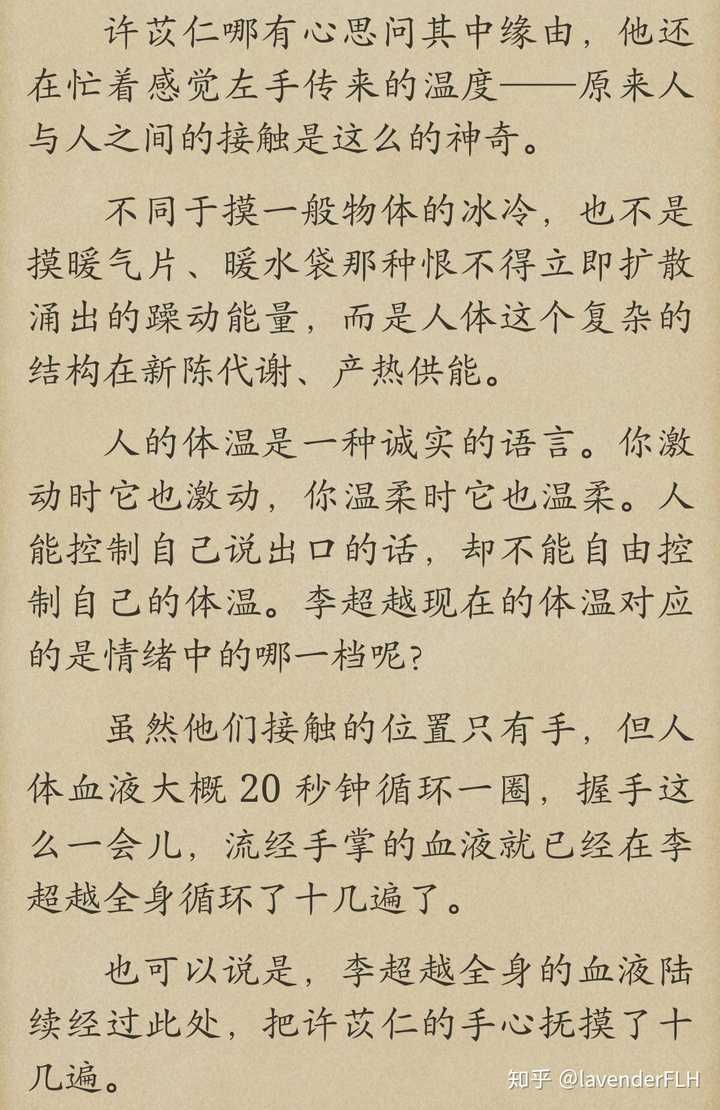 许苡仁哪有心思问其中缘由，他还
在忙着感觉左手传来的温度——原来人
与人之间的接触是这么的神奇。
不同于摸一般物体的冰冷，也不是
摸暖气片、暖水袋那种恨不得立即扩散
涌出的躁动能量，而是人体这个复杂的
结构在新陈代谢、产热供能。
人的体温是一种诚实的语言。你激
动时它也激动，你温柔时它也温柔。人
能控制自己说出口的话，却不能自由控
制自己的体温。李超越现在的体温对应
的是情绪中的哪一档呢?
虽然他们接触的位置只有手，但人
体血液大概 20 秒钟循环一圈，握手这
么一会儿，流经手掌的血液就已经在李
超越全身循环了十几遍了。
也可以说是，李超越全身的血液陆
续经过此处，把许苡仁的手心抚摸了十
几遍。
知乎 @lavenderFLH